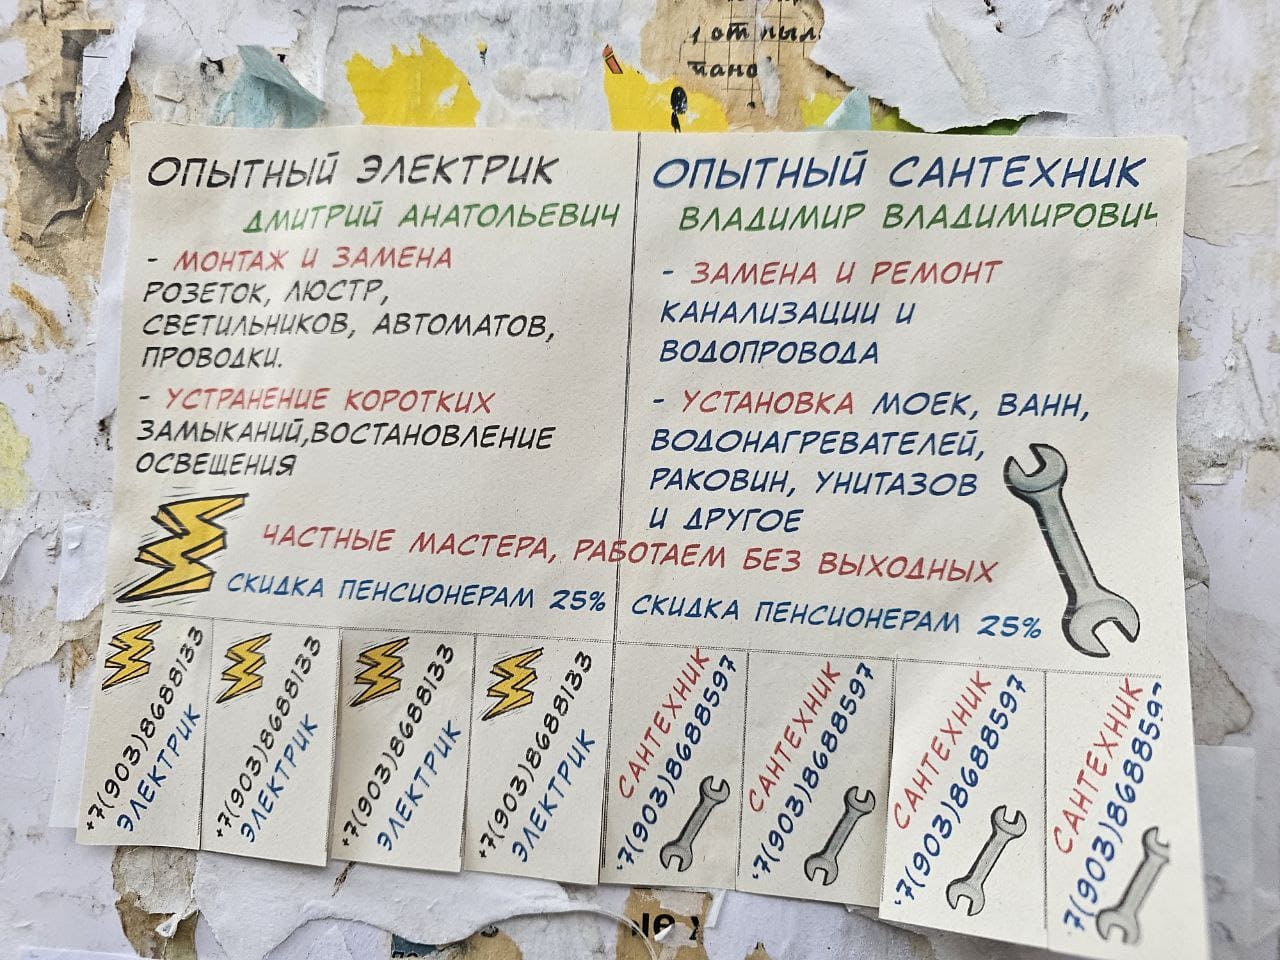 1 от пыл
тано
ОПЫТНЫЙ ЭЛЕКТРИК
ДМИТРИЙ АНАТОЛЬЕВИЧ
- МОНТАЖ И ЗАМЕНА
РОЗЕТОК, ЛЮСТР,
СВЕТИЛЬНИКОВ, АВТОМАТОВ,
ПРОВОДКИ.
- УСТРАНЕНИЕ КОРОТКИХ
ЗАМЫКАНИЙ,ВОСТАНОВЛЕНИЕ
ОСВЕЩЕНИЯ
ОПЫТНЫЙ САНТЕХНИК
ВЛАДИМИР ВЛАДИМИРОВИЧ
- ЗАМЕНА И РЕМОНТ
КАНАЛИЗАЦИИ И
ВОДОПРОВОДА
- УСТАНОВКА МОЕК, ВАНН,
ВОДОНАГРЕВАТЕЛЕЙ,
РАКОВИН, УНИТАЗОВ
И ДРУГОЕ
ЧАСТНЫЕ МАСТЕРА, РАБОТАЕМ БЕЗ ВЫХОДНЫХ
СКИДКА ПЕНСИОНЕРАМ 25%
СКИДКА ПЕНСИОНЕРАМ 25%
+7(903)8688133
ЭЛЕКТРИК
+7(903)8688133
ЭЛЕКТРИК
+7(903)8688133
ЭЛЕКТРИК
+7(903)8688133
ЭЛЕКТРИК
САНТЕХНИК
+7(903)8688597
САНТЕХНИК
+7(903)8688597
САНТЕХНИК
+7(903)8688597
САНТЕХНИК
7(903)8688597